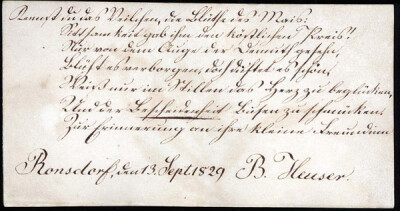 Kennst du das Veilchen, die Blüthe des Mais?
Sittsamkeit gab ihm den köstlichen Preis!
Nur von dem Auge der Demuth gesehn,
Blüht es verborgen, doch duftet es schön,
Weiß nur im Stillen das Herz zu beglücken,
Und der Bescheidenheit Busen zu schmücken.
Zur Erinnerung an ihre kleine Freundinn
Ronsdorf, den 13. Sept. 1829 B. Heuser.